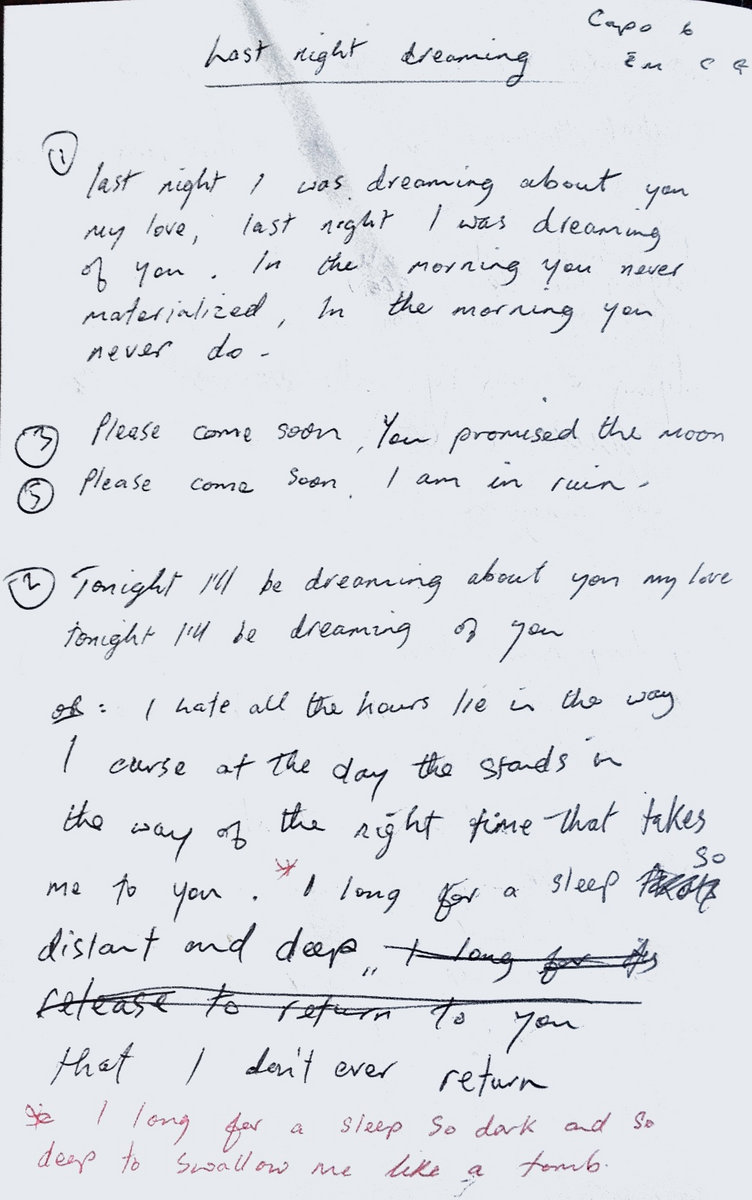 Capo 6
Last night dreaming
Em C G
①
last night I was dreaming about you
my love, last night I was dreaming
of you. In the morning you never
materialized, In the morning you
never do -
③ Please come soon, You promised the moon
⑤ Please come soon. I am in ruin.
② Tonight I'll be dreaming about you my love
tonight I'll be dreaming of you
I hate all the hours lie in the way
I curse at the day the stands in
the way of the night time that takes
so
me to you. * I long for a sleep
distant and deep,, I long for its
release to return to you
that I don't ever return
* I long for a sleep so dark and so
deep to swallow me like a tomb.